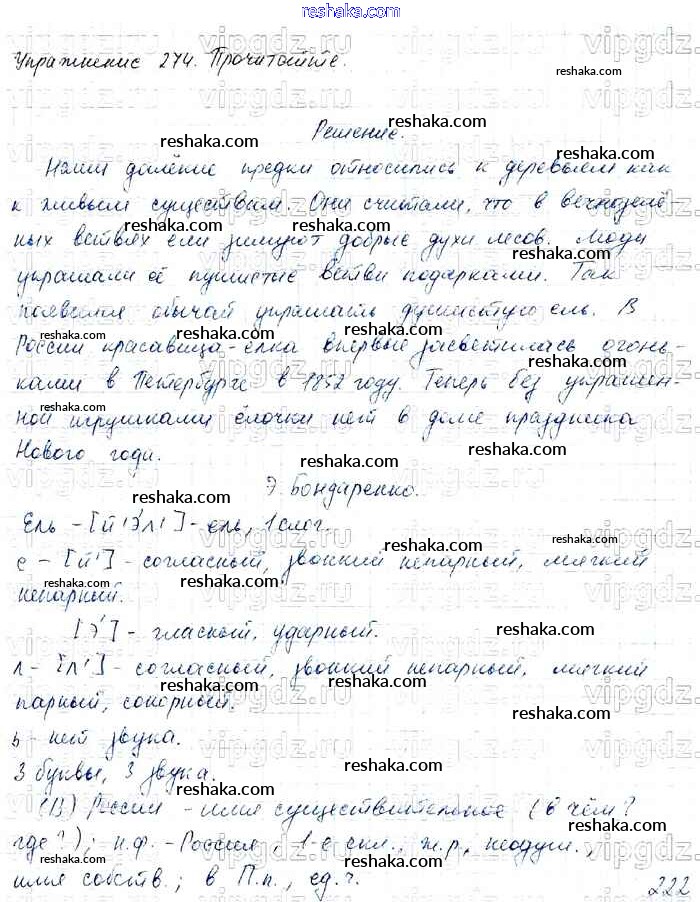 reshaka.com
Упражнение 274. Прочитайте.
Решение.
Наши далёкие предки относились к деревьям как
к живым существам. Они считали, что в вечнозелё-
ных ветвях ели зимуют добрые духи лесов. Люди
украшали её пушистые ветви подарками. Так
появился обычай украшать душистую ель. В
России красавица-ёлка впервые засветилась огонь-
ками в Петербурге в 1852 году. Теперь без украшен-
ной игрушками ёлочки нет в доме праздника
Нового года.
Э. Бондаренко.
Ель – [й'э́л'] – ель, 1 слог.
е – [й'] – согласный, звонкий непарный, мягкий
непарный.
[э́] – гласный, ударный.
л – [л'] – согласный, звонкий непарный, мягкий
парный, сонорный.
ь – нет звука.
3 буквы, 3 звука.
(В) России – имя существительное (в чём?
где?); н.ф. – Россия, 1-е скл., ж.р., неодуш.,
имя собств.; в П.п., ед.ч.
222